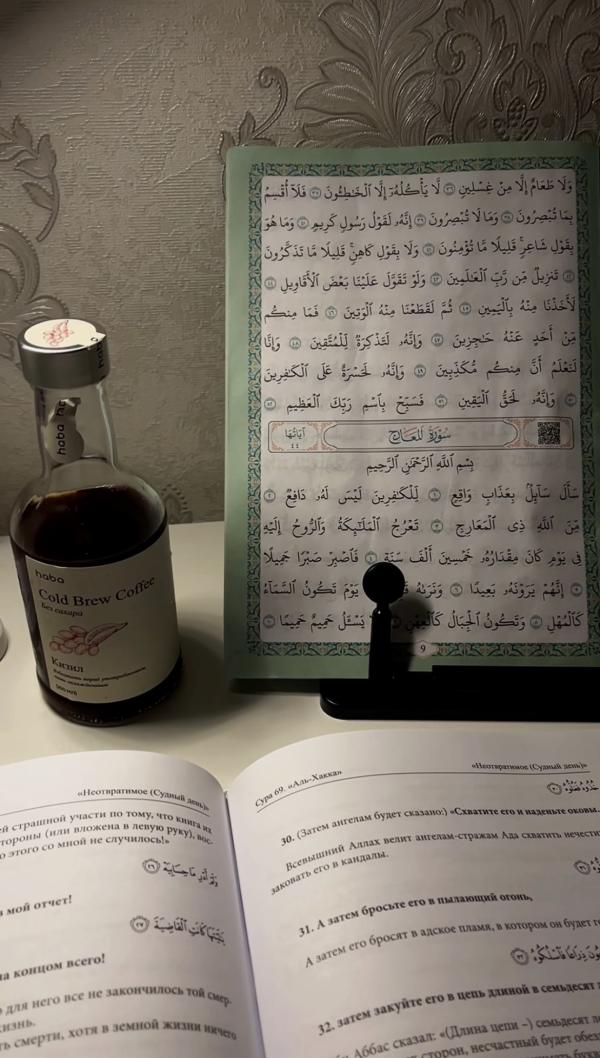 وَلَا طَعَامٌ إِلَّا مِنْ غِسْلِينٍ ٣٦ لَّا يَأْكُلُهُۥٓ إِلَّا ٱلْخَـٰطِـُٔونَ ٣٧ فَلَآ أُقْسِمُ
بِمَا تُبْصِرُونَ ٣٨ وَمَا لَا تُبْصِرُونَ ٣٩ إِنَّهُۥ لَقَوْلُ رَسُولٍ كَرِيمٍ ٤٠ وَمَا هُوَ
بِقَوْلِ شَاعِرٍۚ قَلِيلًا مَّا تُؤْمِنُونَ ٤١ وَلَا بِقَوْلِ كَاهِنٍۚ قَلِيلًا مَّا تَذَكَّرُونَ
٤٢ تَنزِيلٌ مِّن رَّبِّ ٱلْعَـٰلَمِينَ ٤٣ وَلَوْ تَقَوَّلَ عَلَيْنَا بَعْضَ ٱلْأَقَاوِيلِ ٤٤
لَأَخَذْنَا مِنْهُ بِٱلْيَمِينِ ٤٥ ثُمَّ لَقَطَعْنَا مِنْهُ ٱلْوَتِينَ ٤٦ فَمَا مِنكُم
مِّنْ أَحَدٍ عَنْهُ حَـٰجِزِينَ ٤٧ وَإِنَّهُۥ لَتَذْكِرَةٌ لِّلْمُتَّقِينَ ٤٨ وَإِنَّا
لَنَعْلَمُ أَنَّ مِنكُم مُّكَذِّبِينَ ٤٩ وَإِنَّهُۥ لَحَسْرَةٌ عَلَى ٱلْكَـٰفِرِينَ
٥٠ وَإِنَّهُۥ لَحَقُّ ٱلْيَقِينِ ٥١ فَسَبِّحْ بِٱسْمِ رَبِّكَ ٱلْعَظِيمِ ٥٢
سُورَةُ المَعَارِجِ
آيَاتُهَا
٤٤
بِسْمِ ٱللَّهِ ٱلرَّحْمَـٰنِ ٱلرَّحِيمِ
سَأَلَ سَآئِلٌۢ بِعَذَابٍ وَاقِعٍ ١ لِّلْكَـٰفِرِينَ لَيْسَ لَهُۥ دَافِعٌ ٢
مِّنَ ٱللَّهِ ذِى ٱلْمَعَارِجِ ٣ تَعْرُجُ ٱلْمَلَـٰٓئِكَةُ وَٱلرُّوحُ إِلَيْهِ
فِى يَوْمٍ كَانَ مِقْدَارُهُۥ خَمْسِينَ أَلْفَ سَنَةٍ ٤ فَٱصْبِرْ صَبْرًا جَمِيلًا
٥ إِنَّهُمْ يَرَوْنَهُۥ بَعِيدًا ٦ وَنَرَىٰهُ يَوْمَ تَكُونُ ٱلسَّمَآءُ
كَٱلْمُهْلِ ٨ وَتَكُونُ ٱلْجِبَالُ كَٱلْعِهْنِ يَسْـَٔلُ حَمِيمٌ حَمِيمًا ١٠
9
haba
haba
Cold Brew Coffee
Без сахара
Кизил
«Неотвратимое (Судный день)»
ей страшной участи по тому, что книга их
тороны (или вложена в левую руку), вос-
о этого со мной не случилось!»
мой отчет!
на концом всего!
о для него все не закончилось той смер-
жизнь.
ть смерти, хотя в земной жизни ничего
Сура 69. «Аль-Хакка»
«Неотвратимое (Судный день)»
30. (Затем ангелам будет сказано:) «Схватите его и наденьте оковы.
Всевышний Аллах велит ангелам-стражам Ада схватить нечести
заковать его в кандалы.
31. А затем бросьте его в пылающий огонь,
А затем его бросят в адское пламя, в котором он будет го
32. затем закуйте его в цепь длиной в семьдесят
Аббас сказал: «(Длина цепи –) семьдесят
сторон, несчастный будет обез